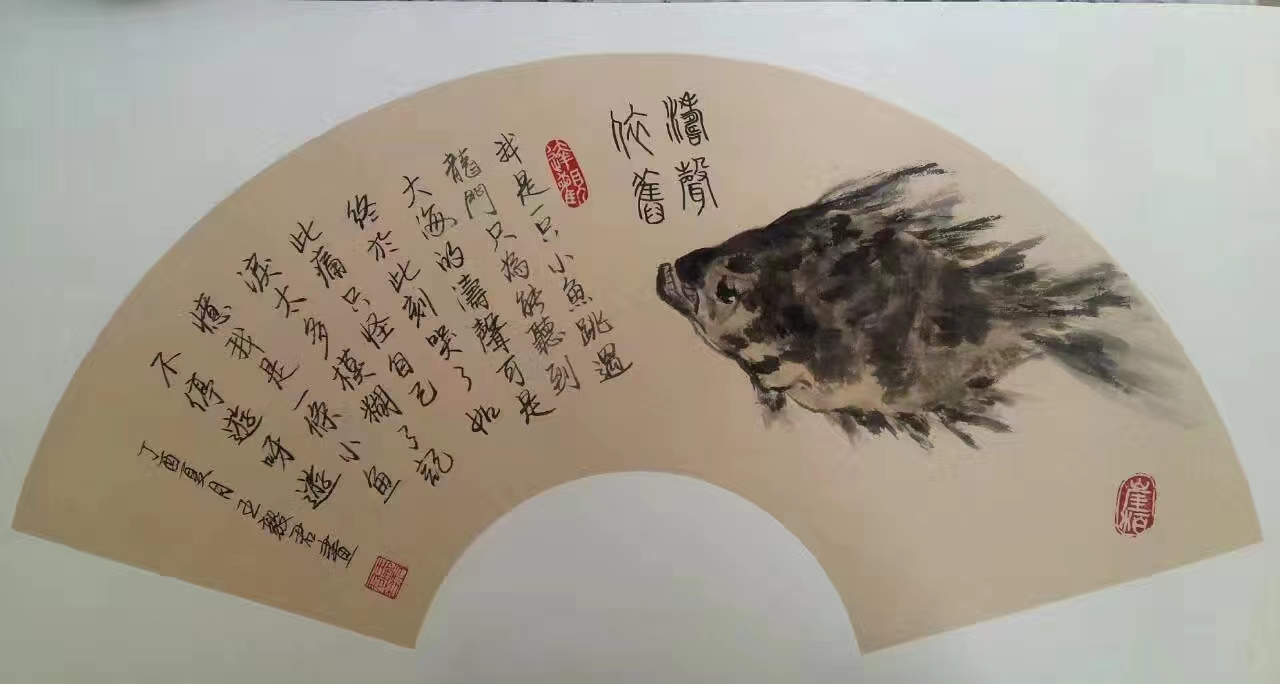 濤聲
依舊
達觀
我是一只小魚跳過
龍門只為能聽到
大海的濤聲可是
終於此刻哭了如
此痛只怪自己
淚太多模糊了記
憶我是一條小魚
不停遊呀遊
丁酉夏月
崖柏